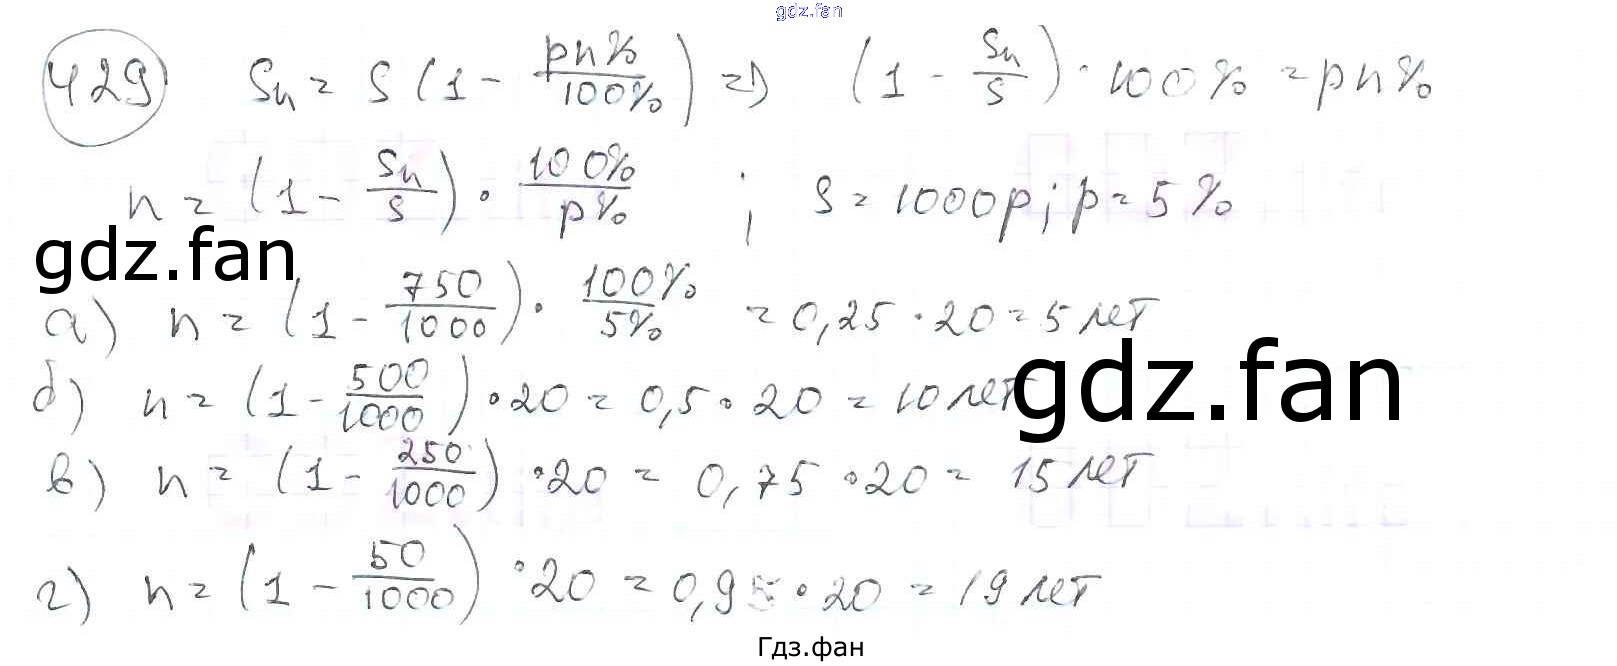 gdz.fan
429 Sn = S (1 - pn%/100%) => (1 - Sn/S) · 100% = pn%
n = (1 - Sn/S) · 100%/p% ; S = 1000р; p = 5%
gdz.fan
а) n = (1 - 750/1000) · 100%/5% = 0,25 · 20 = 5 лет
gdz.fan
б) n = (1 - 500/1000) · 20 = 0,5 · 20 = 10 лет
в) n = (1 - 250/1000) · 20 = 0,75 · 20 = 15 лет
г) n = (1 - 50/1000) · 20 = 0,95 · 20 = 19 лет
Гдз.фан